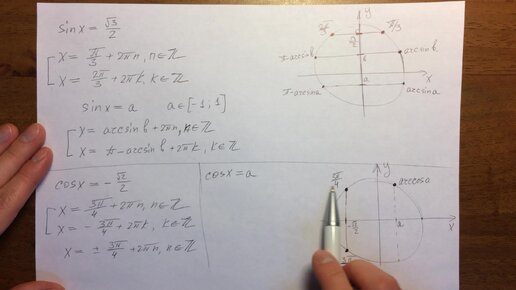 sin x = √3/2
x = π/3 + 2πn, n∈ℤ
x = 2π/3 + 2πk, k∈ℤ
sin x = a a∈[-1; 1]
x = arcsin b + 2πn, n∈ℤ
x = π - arcsin b + 2πk, k∈ℤ
y
π/3
√3/2
b
π-arcsin b
arcsin b
x
a
π-arcsin a
arcsin a
cos x = -√2/2
x = 3π/4 + 2πn, n∈ℤ
x = -3π/4 + 2πk, k∈ℤ
x = ± 3π/4 + 2πn, n∈ℤ
cos x = a
y
arccos a
-√2/2
a
x